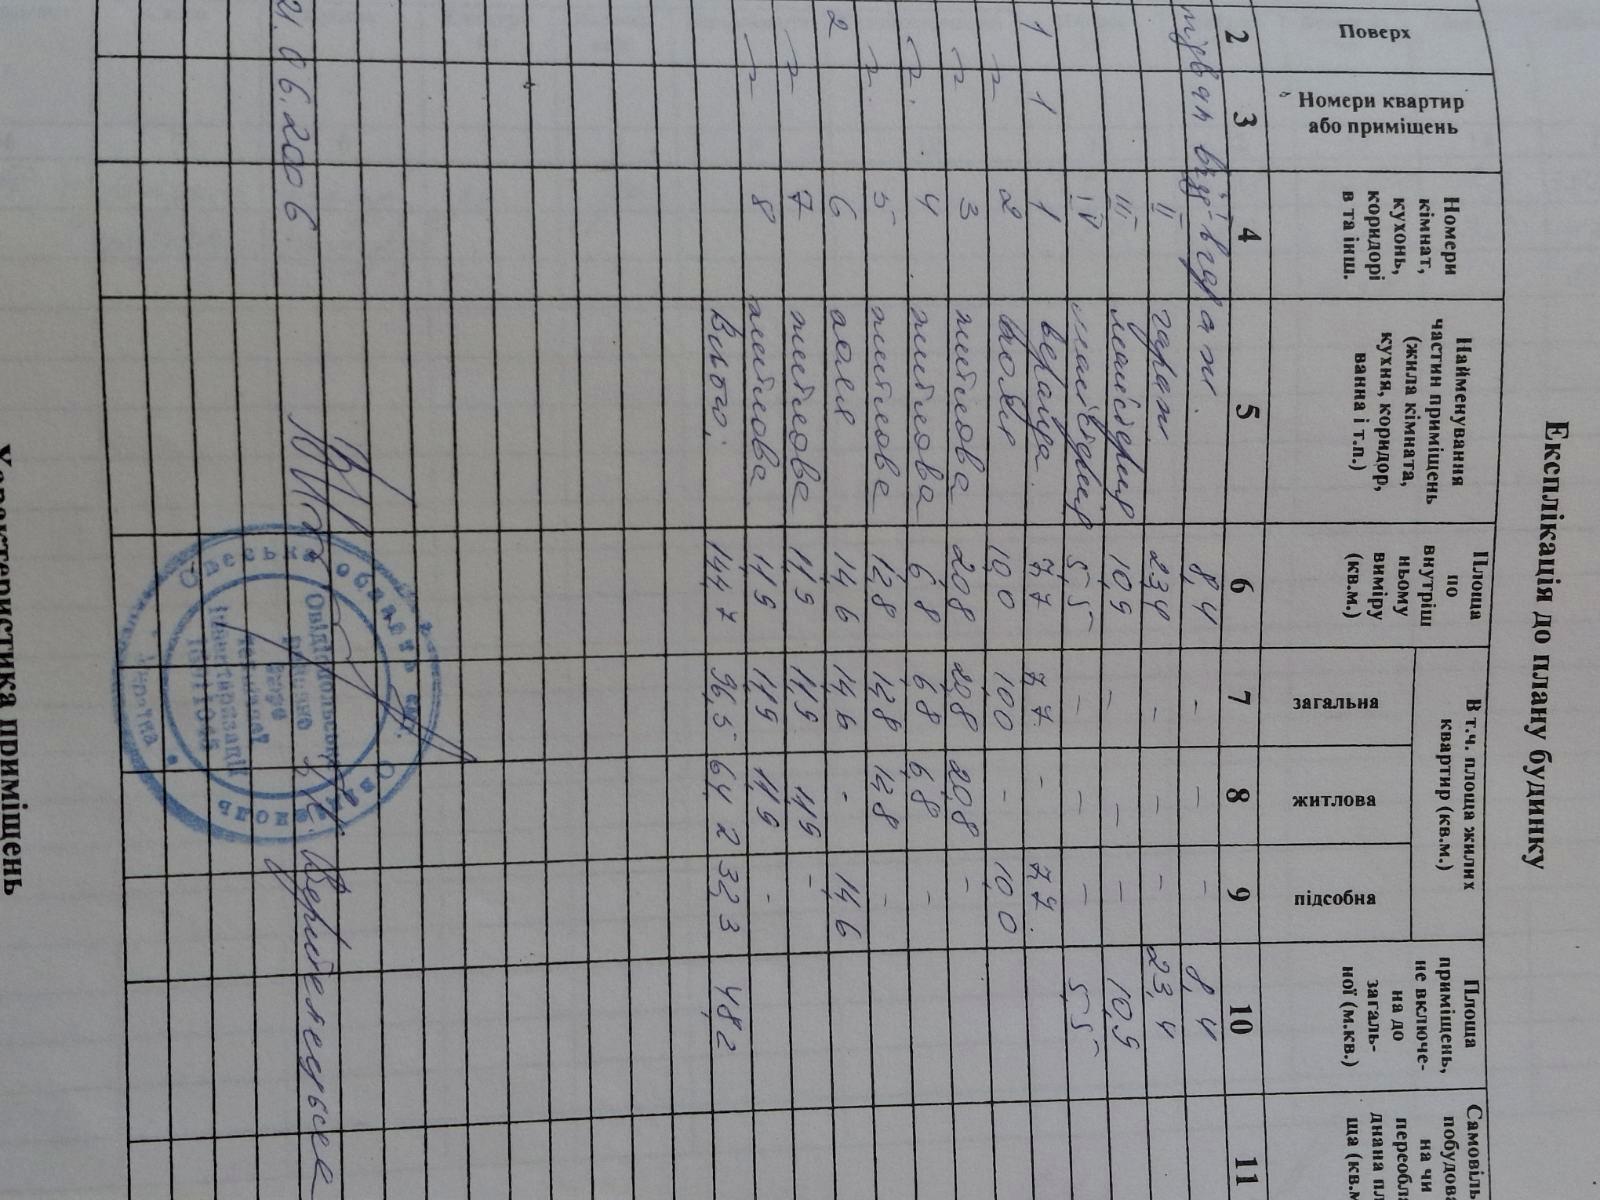 Експлікація до плану будинку
Поверх
Номери квартир або приміщень
Номери кімнат, кухонь, коридорів та інш.
Найменування частин приміщень (жила кімната, кухня, коридор, ванна і т.п.)
Площа по внутрішньому виміру (кв.м.)
В т.ч. площа жилих квартир (кв.м.)
загальна
житлова
підсобна
Площа приміщень, не включена до загальної (м.кв.)
Самовіль
побудова
на чи
перeобла
днана пл
ща (кв.м
2 3 4 5 6 7 8 9 10 11
підвал від І вгараж. 8,4 - - - 8,4
ІІ гараж 23,4 - - - 23,4
ІІІ майстерня 10,9 - - - 10,9
IV 5,5 - - - 5,5
1 1 1 веранда 7,7 7,7 - 7,7
2 кухня 10,0 10,0 - 10,0
3 житлова 20,8 20,8 20,8 -
4 житлова 6,8 6,8 6,8 -
5 житлова 12,8 12,8 12,8 -
2 6 14,6 14,6 - 14,6
7 житлова 11,9 11,9 11,9 -
8 житлова 11,9 11,9 11,9 -
Всього: 144,7 96,5 64,2 32,3 48,2
21.06.2006
Одеська область
Овідіопольське
районне
бюро
технічної
інвентаризації
Україна
Характеристика приміщень